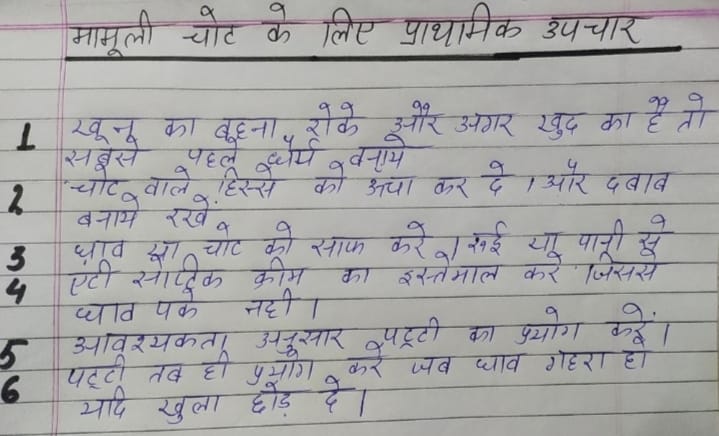 मामूली चोट के लिए प्राथमिक उपचार
1 खून का बहना रोके और अगर खुद का है तो
सबसे पहले धैर्य बनाये
2 चोट वाले हिस्से को ऊचा कर दे । और दबाब
बनाये रखें
3 घाव या चोट को साफ करे । रुई या पानी से
4 एंटी सेप्टिक क्रीम का इस्तेमाल करे जिससे
घाव पके नही ।
5 आवश्यकता अनुसार पट्टी का प्रयोग करें ।
6 पट्टी तब ही प्रयोग करे जब घाव गहरा हो
यदि खुला छोड़ दे ।